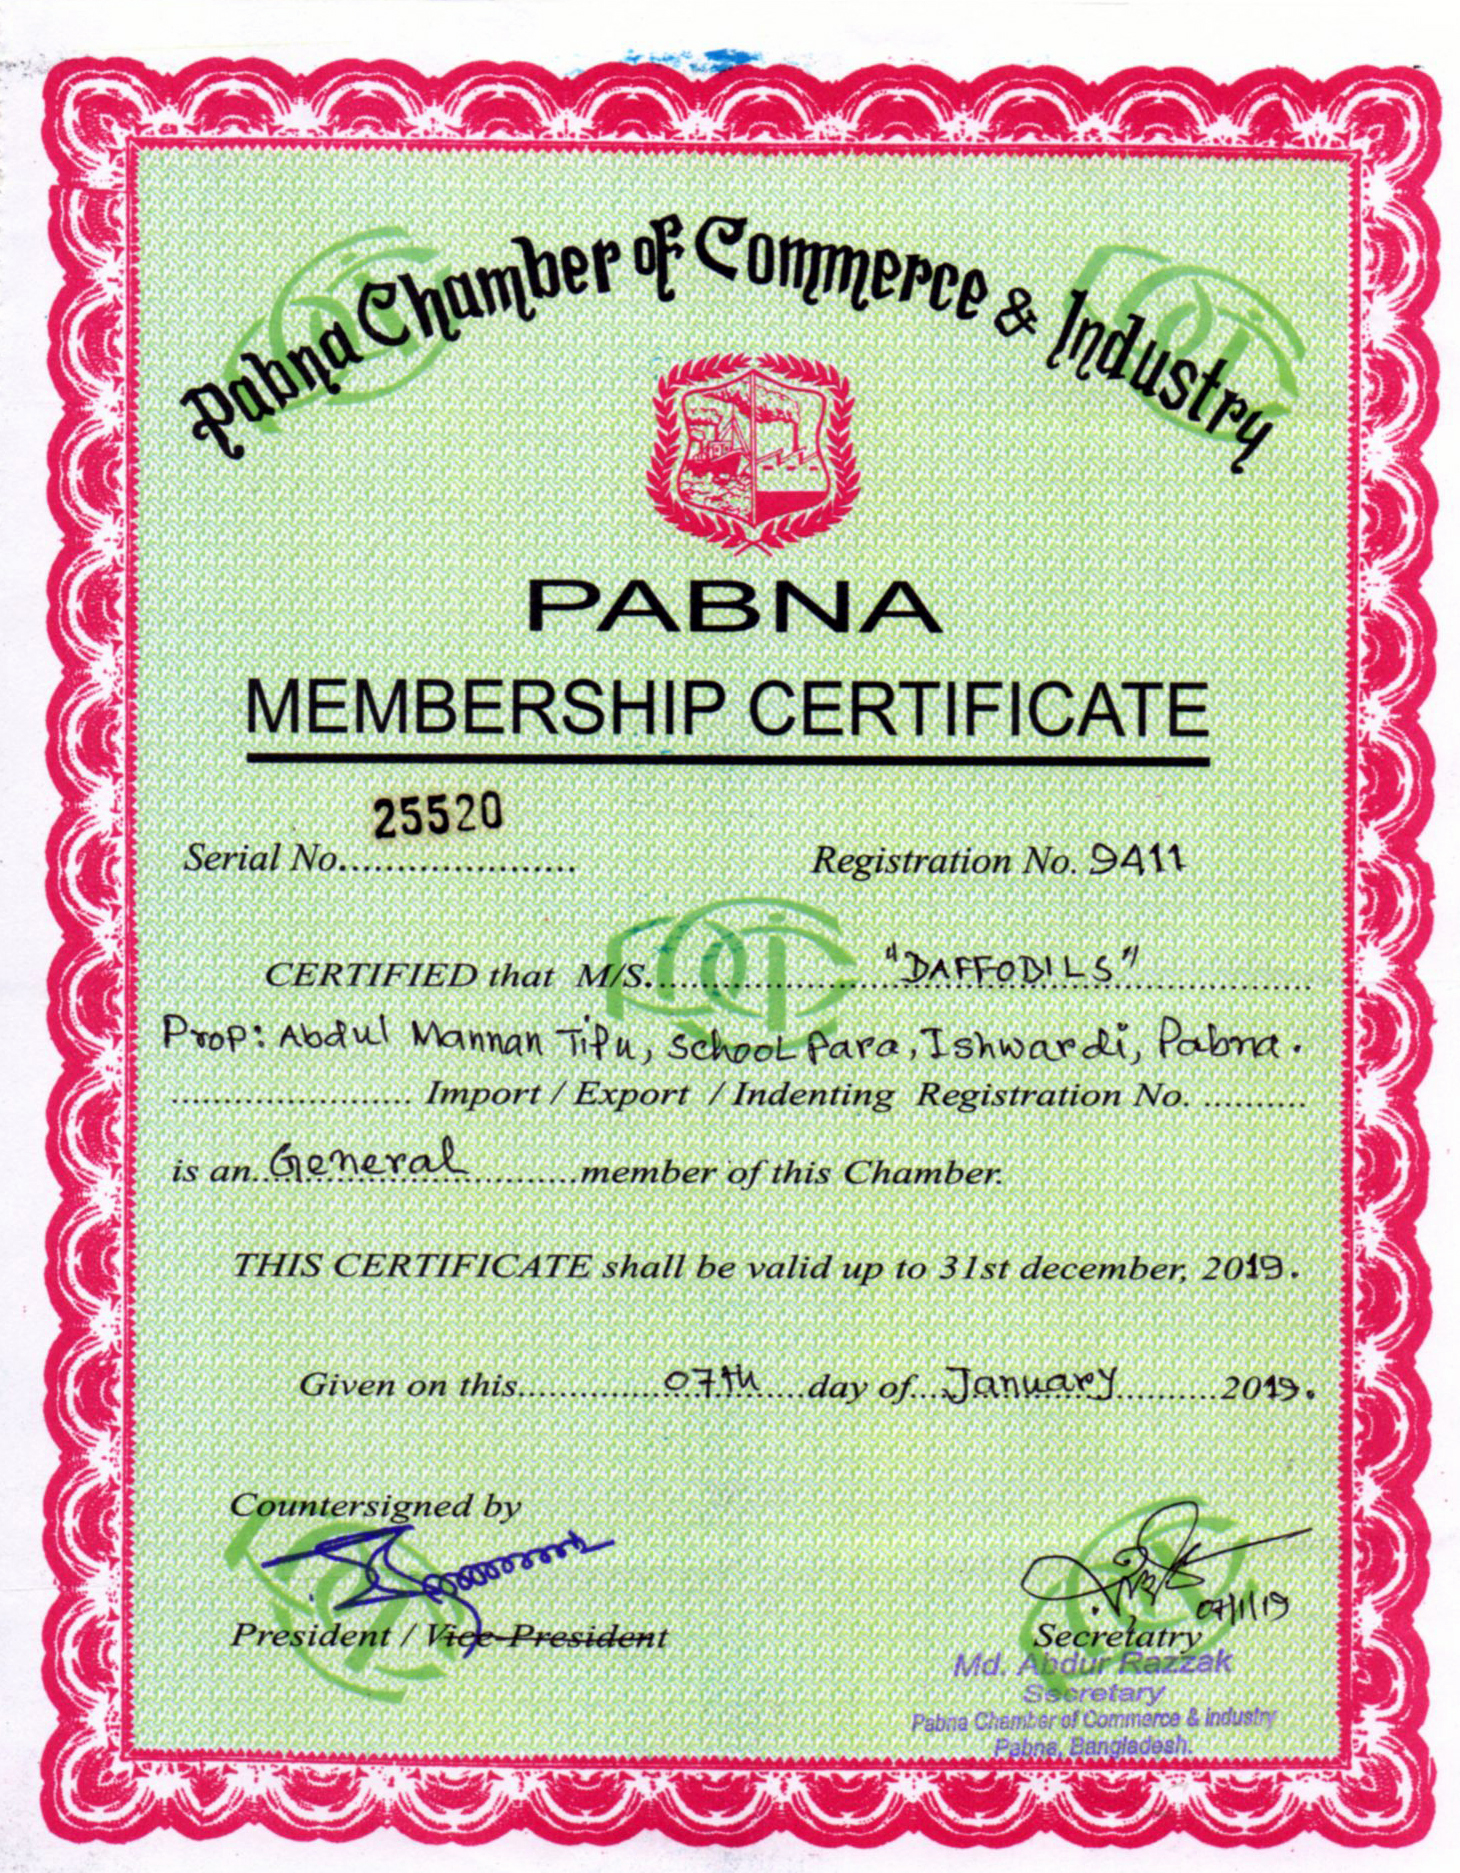 Pabna Chamber of Commerce & Industry
PABNA
MEMBERSHIP CERTIFICATE
25520
Serial No..................... Registration No. 9411
CERTIFIED that M/S. "DAFFODILS"
Prop: Abdul Mannan Tipu, School Para, Ishwardi, Pabna.
...................... Import / Export / Indenting Registration No. ..........
is an General member of this Chamber.
THIS CERTIFICATE shall be valid up to 31st december, 2019.
Given on this 07th day of January 2019.
Countersigned by
07/1/19
President / Vice-President Secretatry
Md. Abdur Razzak
Secretary
Pabna Chamber of Commerce & Industry
Pabna, Bangladesh.